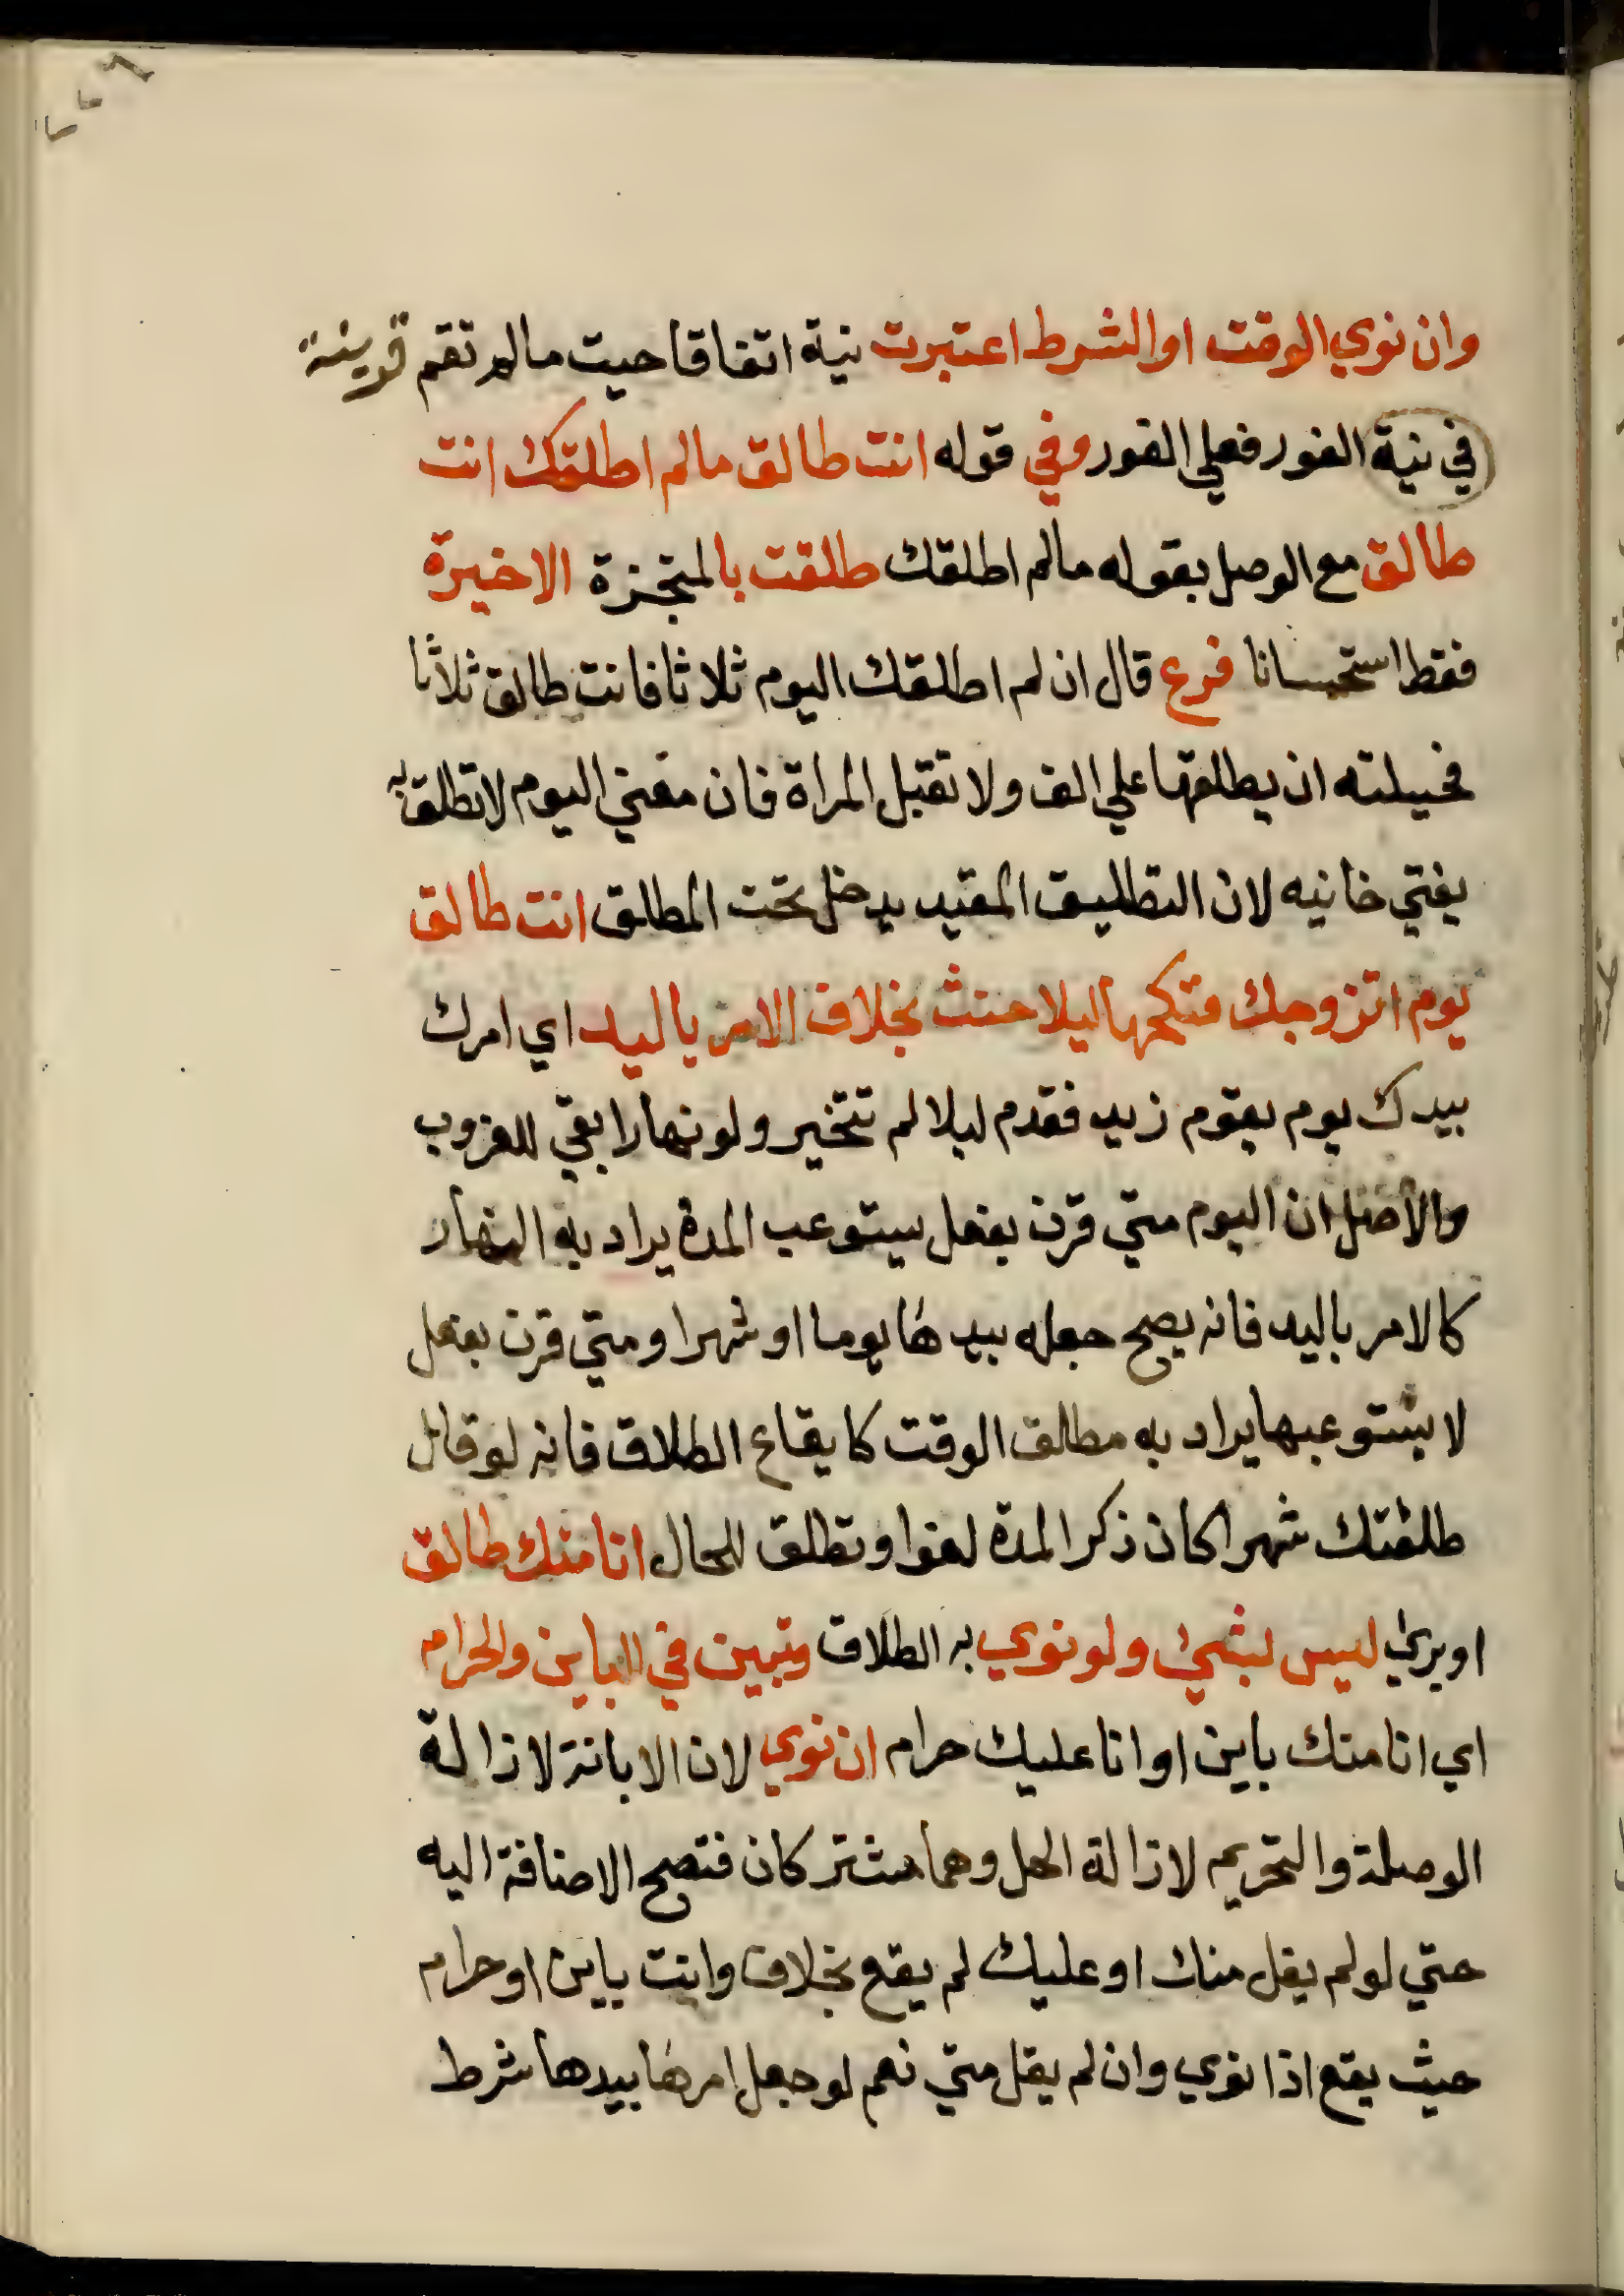 وان نوي الوقت او الشرط اعتبرت نية اتفاقا حيت مالم تقم قرينة
في نية الفور فعلي الفور وفي قوله انت طالق مالم اطلقك انت
طالق مع الوصل بقوله مالم اطلقك طلقت بالمنجزة الاخيرة
فقط استحسانا فرع قال ان لم اطلقك اليوم ثلاثا فانت طالق ثلاثا
فحيلته ان يطلقها علي الف ولا تقبل المراة فان مضي اليوم لا تطلق به
يفتي خانيه لان التطليق المقيد يدخل تحت المطلق انت طالق
يوم اتزوجك فنكحها ليلا حنث بخلاف الامر باليد اي امرك
بيدك يوم يقوم زيد فقدم ليلا لم تتخير ولو نهارا بقي للغروب
والاصل ان اليوم متي قرن بفعل يستوعب المدة يراد به النهار
كالامر باليد فانه يصح جعله بيدها يوما او شهرا ومتي قرن بفعل
لا يستوعبها يراد به مطلق الوقت كايقاع الطلاق فانه لو قال
طلقتك شهرا كان ذكر المدة لغوا وتطلق للحال انا منك طالق
او بريئ ليس بشيئ ولو نوي به الطلاق وتبين في الباين والحرام
اي انا منك باين او انا عليك حرام ان نوي لان الابانة لازالة
الوصلة والتحريم لازالة الحل وهما مشتركان فتصح الاضافة اليه
حتي لو لم يقل منك او عليك لم يقع بخلاف وانت باين او حرام
حيث يقع اذا نوي وان لم يقل مني نعم لو جعل امرها بيدها شرط